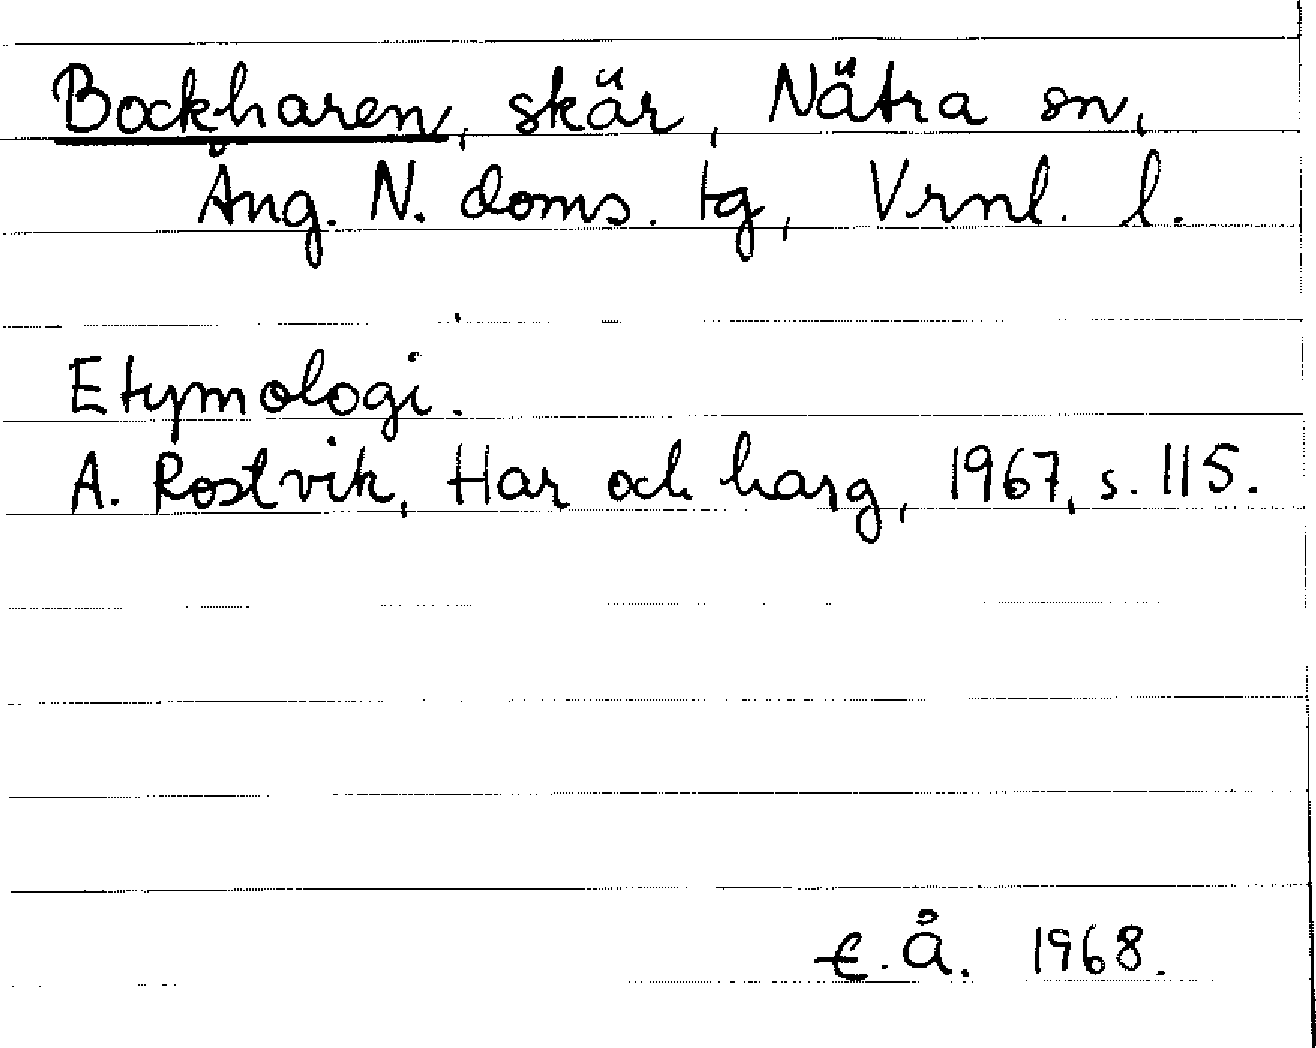 Bockharen, skär, Nätra sn,
Ång. N. doms. tg, Vrnl. l.
Etymologi.
A. Rostvik, Har och harg, 1967, s. 115.
E.Å. 1968.